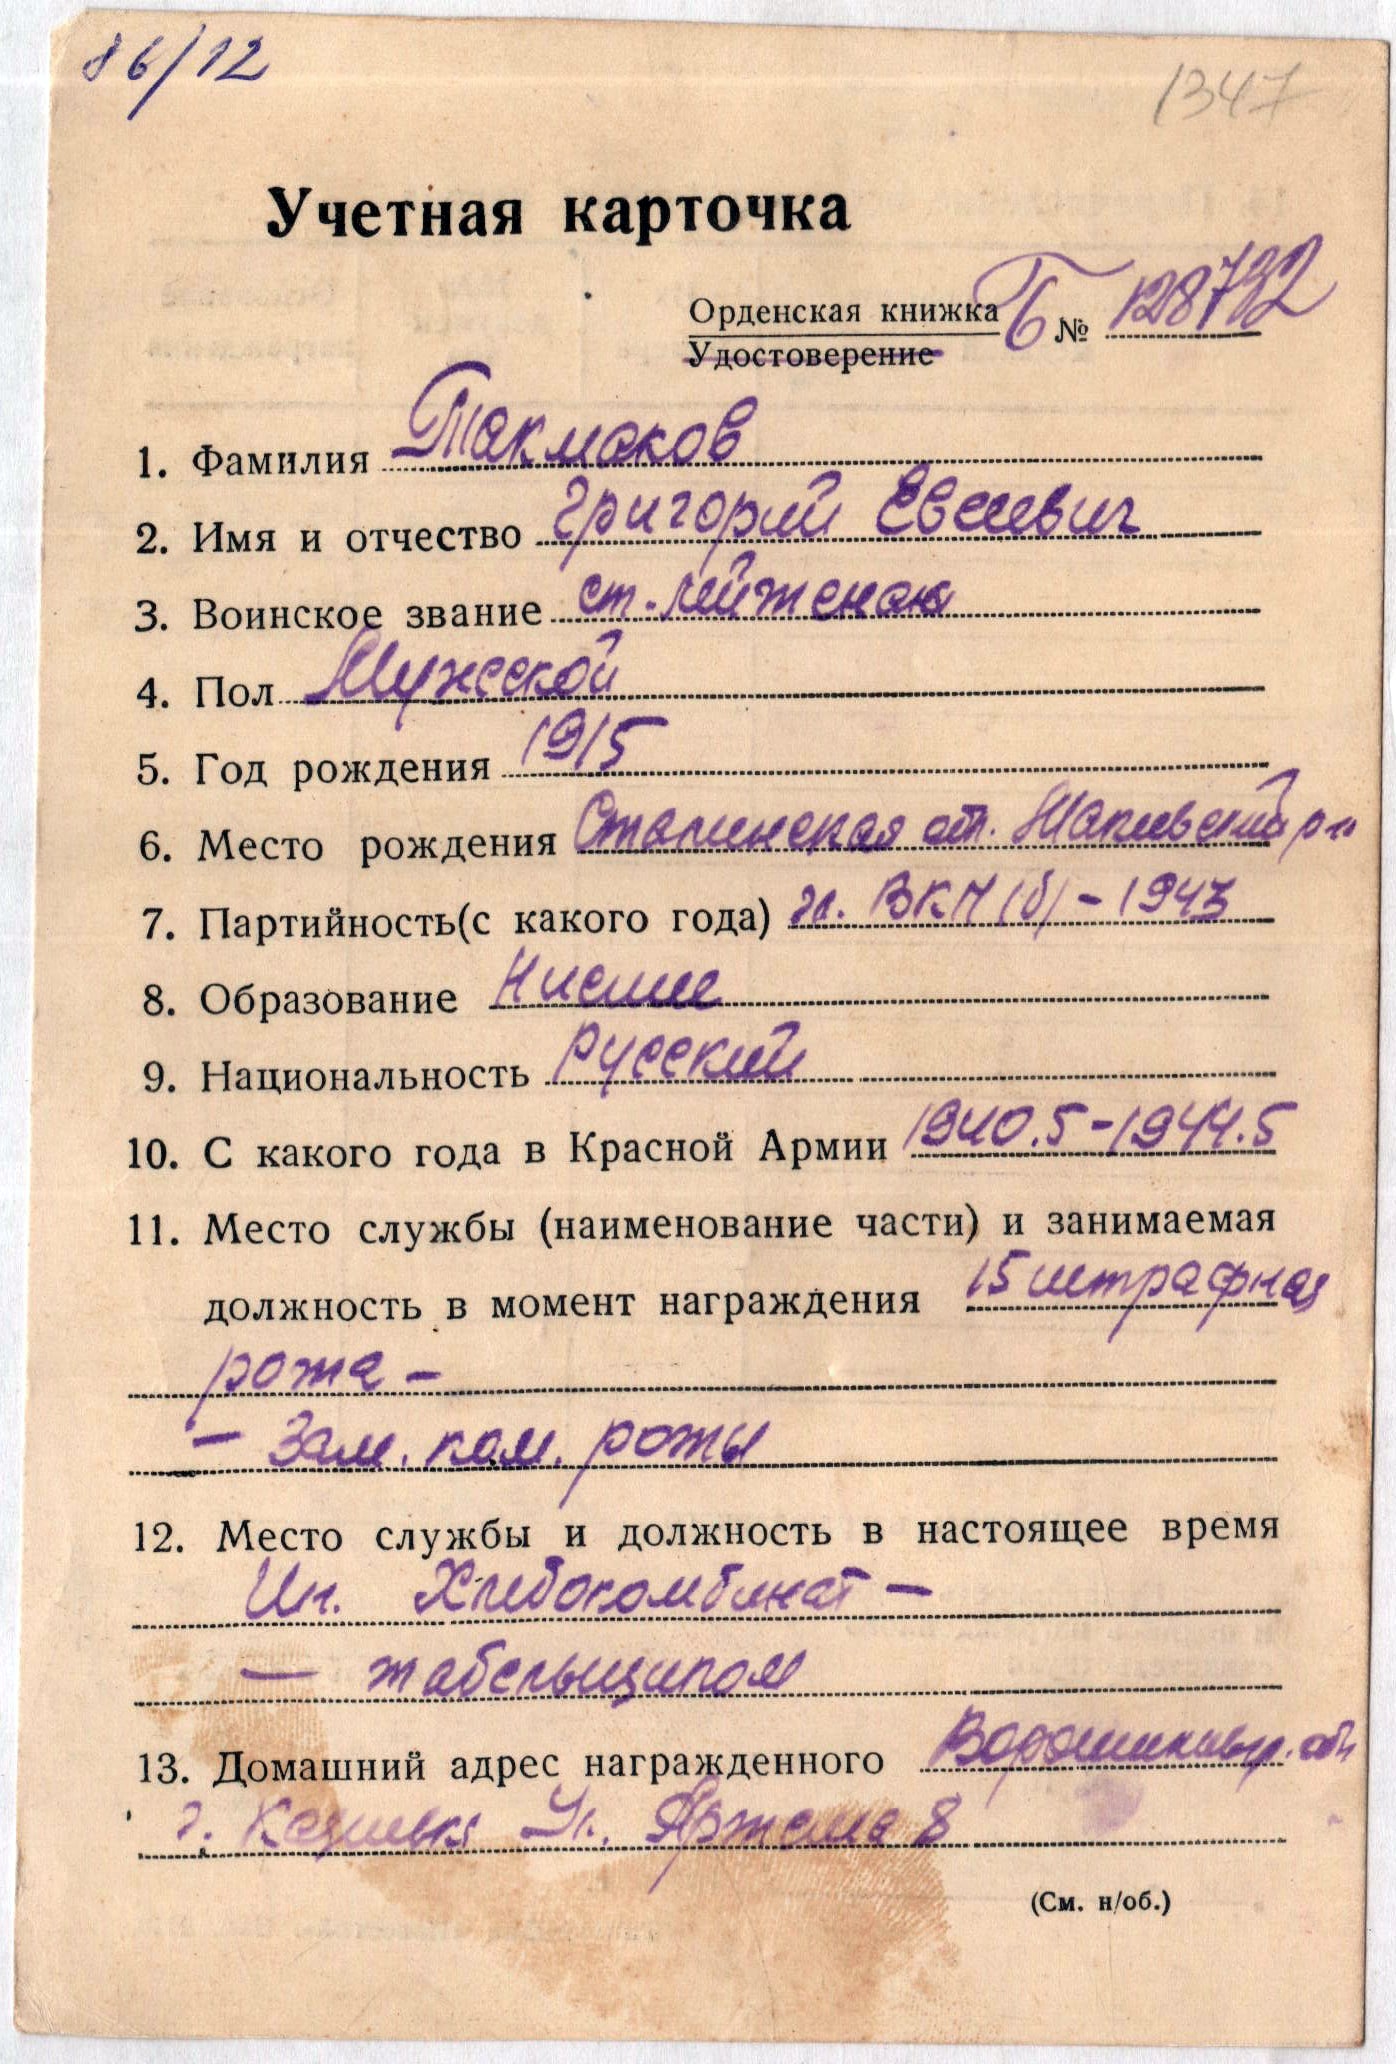 86/12
1347
Учетная карточка
Орденская книжка Б № 128732
Удостоверение
1. Фамилия Такмаков
2. Имя и отчество Григорий Евсеевич
3. Воинское звание ст. лейтенант
4. Пол Мужской
5. Год рождения 1915
6. Место рождения Сталинская обл. р-н
7. Партийность(с какого года) чл. ВКП(б) - 1943
8. Образование Низшее
9. Национальность Русский
10. С какого года в Красной Армии 1940.5-1944.5
11. Место службы (наименование части) и занимаемая
должность в момент награждения 15 штрафная
рота -
- Зам. ком. роты
12. Место службы и должность в настоящее время
Хлебокомбинат -
- табельщиком
13. Домашний адрес награжденного Ворошиловгр. обл
г. Ул. Артема 8
(См. н/об.)